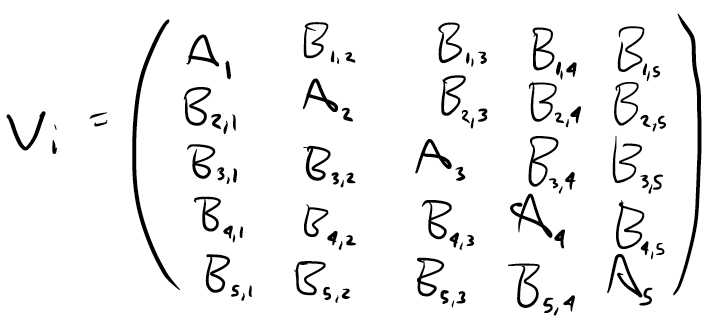 V_i = ( A_1 B_{1,2} B_{1,3} B_{1,4} B_{1,5}
B_{2,1} A_2 B_{2,3} B_{2,4} B_{2,5}
B_{3,1} B_{3,2} A_3 B_{3,4} B_{3,5}
B_{4,1} B_{4,2} B_{4,3} A_4 B_{4,5}
B_{5,1} B_{5,2} B_{5,3} B_{5,4} A_5 )